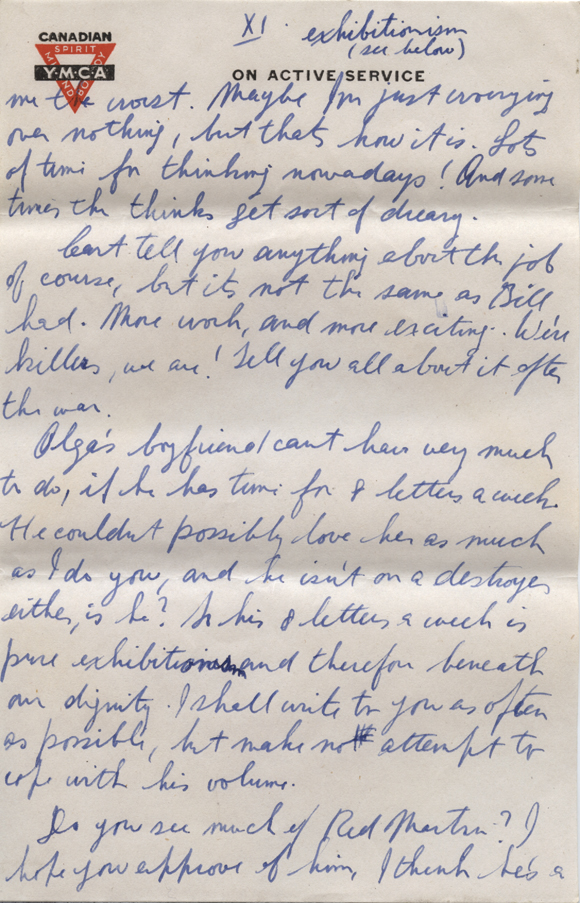 XI. exhibitionism
(see below)
CANADIAN
SPIRIT
Y·M·C·A
MIND BODY
ON ACTIVE SERVICE
me the worst. Maybe I'm just worrying
over nothing, but thats how it is. Lots
of time for thinking nowadays! And some
times the thinks get sort of dreary.
Cant tell you anything about the job
of course, but its not the same as Bill
had. More work, and more exciting. We're
killers, we are! Tell you all about it after
the war.
Olga's boyfriend cant have very much
to do, if he has time for 8 letters a week.
He couldnt possibly love her as much
as I do you, and he isn't on a destroyer
either, is he? So his 8 letters a week is
pure exhibitionism and therefore beneath
our dignity. I shall write to you as often
as possible, but make no attempt to
cope with his volume.
Do you see much of Red Martin? I
hope you approve of him, I think he's a